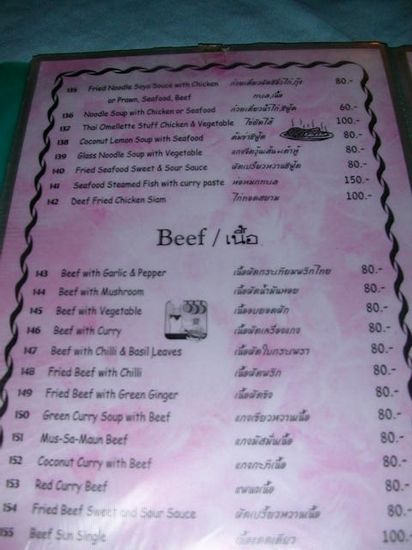 135 Fried Noodle Soya Sauce with Chicken ก๋วยเตี๋ยวผัดซีอิ๊วไก่,กุ้ง 80.-
or Prawn, Seafood, Beef ทะเล,เนื้อ
136 Noodle Soup with Chicken or Seafood 60.-
137 Thai Omellette Stuff Chicken & Vegetable ไข่ยัดไส้ 100.-
138 Coconut Lemon Soup with Seafood 80.-
139 Glass Noodle Soup with Vegetable แกงจืดวุ้นเส้น+เต้าหู้ 80.-
140 Fried Seafood Sweet & Sour Sauce 80.-
141 Seafood Steamed Fish with curry paste ห่อหมกทะเล 150.-
142 Deef Fried Chicken Siam ไก่ทอดสยาม 100.-
Beef / เนื้อ
143 Beef with Garlic & Pepper เนื้อผัดกระเทียมพริกไทย 80.-
144 Beef with Mushroom เนื้อผัดน้ำมันหอย 80.-
145 Beef with Vegetable 80.-
146 Beef with Curry เนื้อผัดเครื่องแกง 80.-
147 Beef with Chilli & Basil Leaves เนื้อผัดใบกระเพรา 80.-
148 Fried Beef with Chilli เนื้อผัดพริก 80.-
149 Fried Beef with Green Ginger เนื้อผัดขิง 80.-
150 Green Curry Soup with Beef แกงเขียวหวานเนื้อ 80.-
151 Mus-Sa-Maun Beef แกงมัสมั่นเนื้อ 80.-
152 Coconut Curry with Beef แกงกะทิเนื้อ 80.-
153 Red Curry Beef แพนงเนื้อ 80.-
154 Fried Beef Sweet and Sour Sauce ผัดเปรี้ยวหวานเนื้อ 80.-
155 Beef Sun Single เนื้อแดดเดียว 100.-